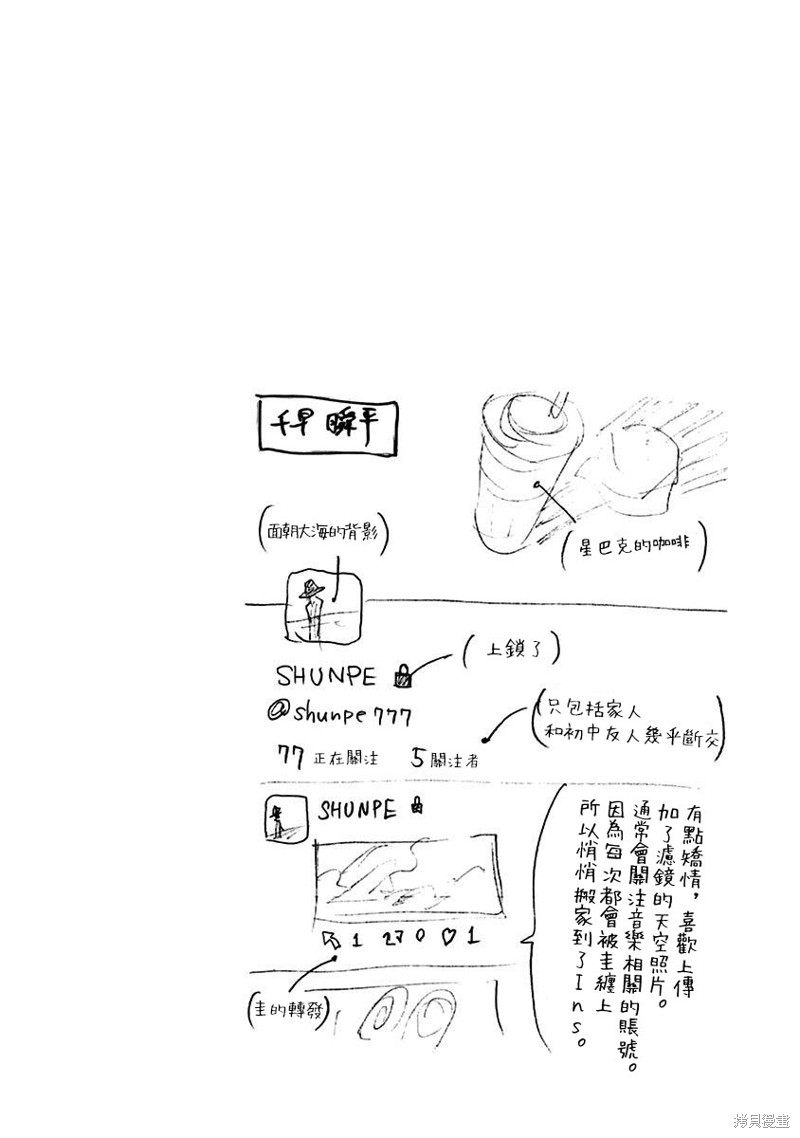 千早 瞬平
(面朝大海的背影)
(星巴克的咖啡)
SHUNPE
(上鎖了)
@shunpe777
(只包括家人
和初中友人幾乎斷交)
77 正在關注 5 關注者
SHUNPE
有點矯情，喜歡上傳
加了濾鏡的天空照片。
通常會關注音樂相關的賬號。
因為每次都會被圭纏上
所以悄悄搬家到了Ins。
1 27 0 1
(圭的轉發)
拷貝漫畫